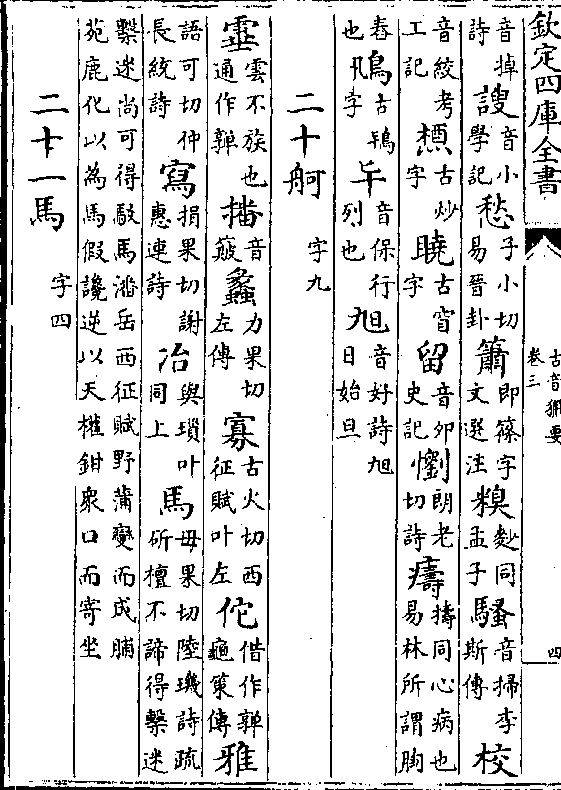 欽定四庫全書 古音獵要 卷三 四
音掉詩 謏音小學記 愁子小切易晉卦 簫即篠字文選注 糗麨同孟子 騷音掃李斯傳 校
音絞考工記 㯱古炒字 曉古窅字 留音夘史記 懰朗老切詩 㿒擣同心病也易林所謂胸
舂也 鴇古鴇凡字 㐄音保行列也 旭音好詩旭日始旦
二十哿 字九
𩂣雲不族也通作嚲 播音簸 蠡力果切左傳 寡古火切西征賦叶左 佗借作嚲龜策傳 雅
語可切仲長統詩 寫損果切謝惠連詩 冶與瑣叶同上 馬毋果切陸璣詩疏斫檀不諦得檕迷
檕迷尚可得駮馬潘岳西征賦野蒲變而成脯
苑鹿化以為馬假讒逆以天權鉗衆口而寄坐
二十一馬 字四